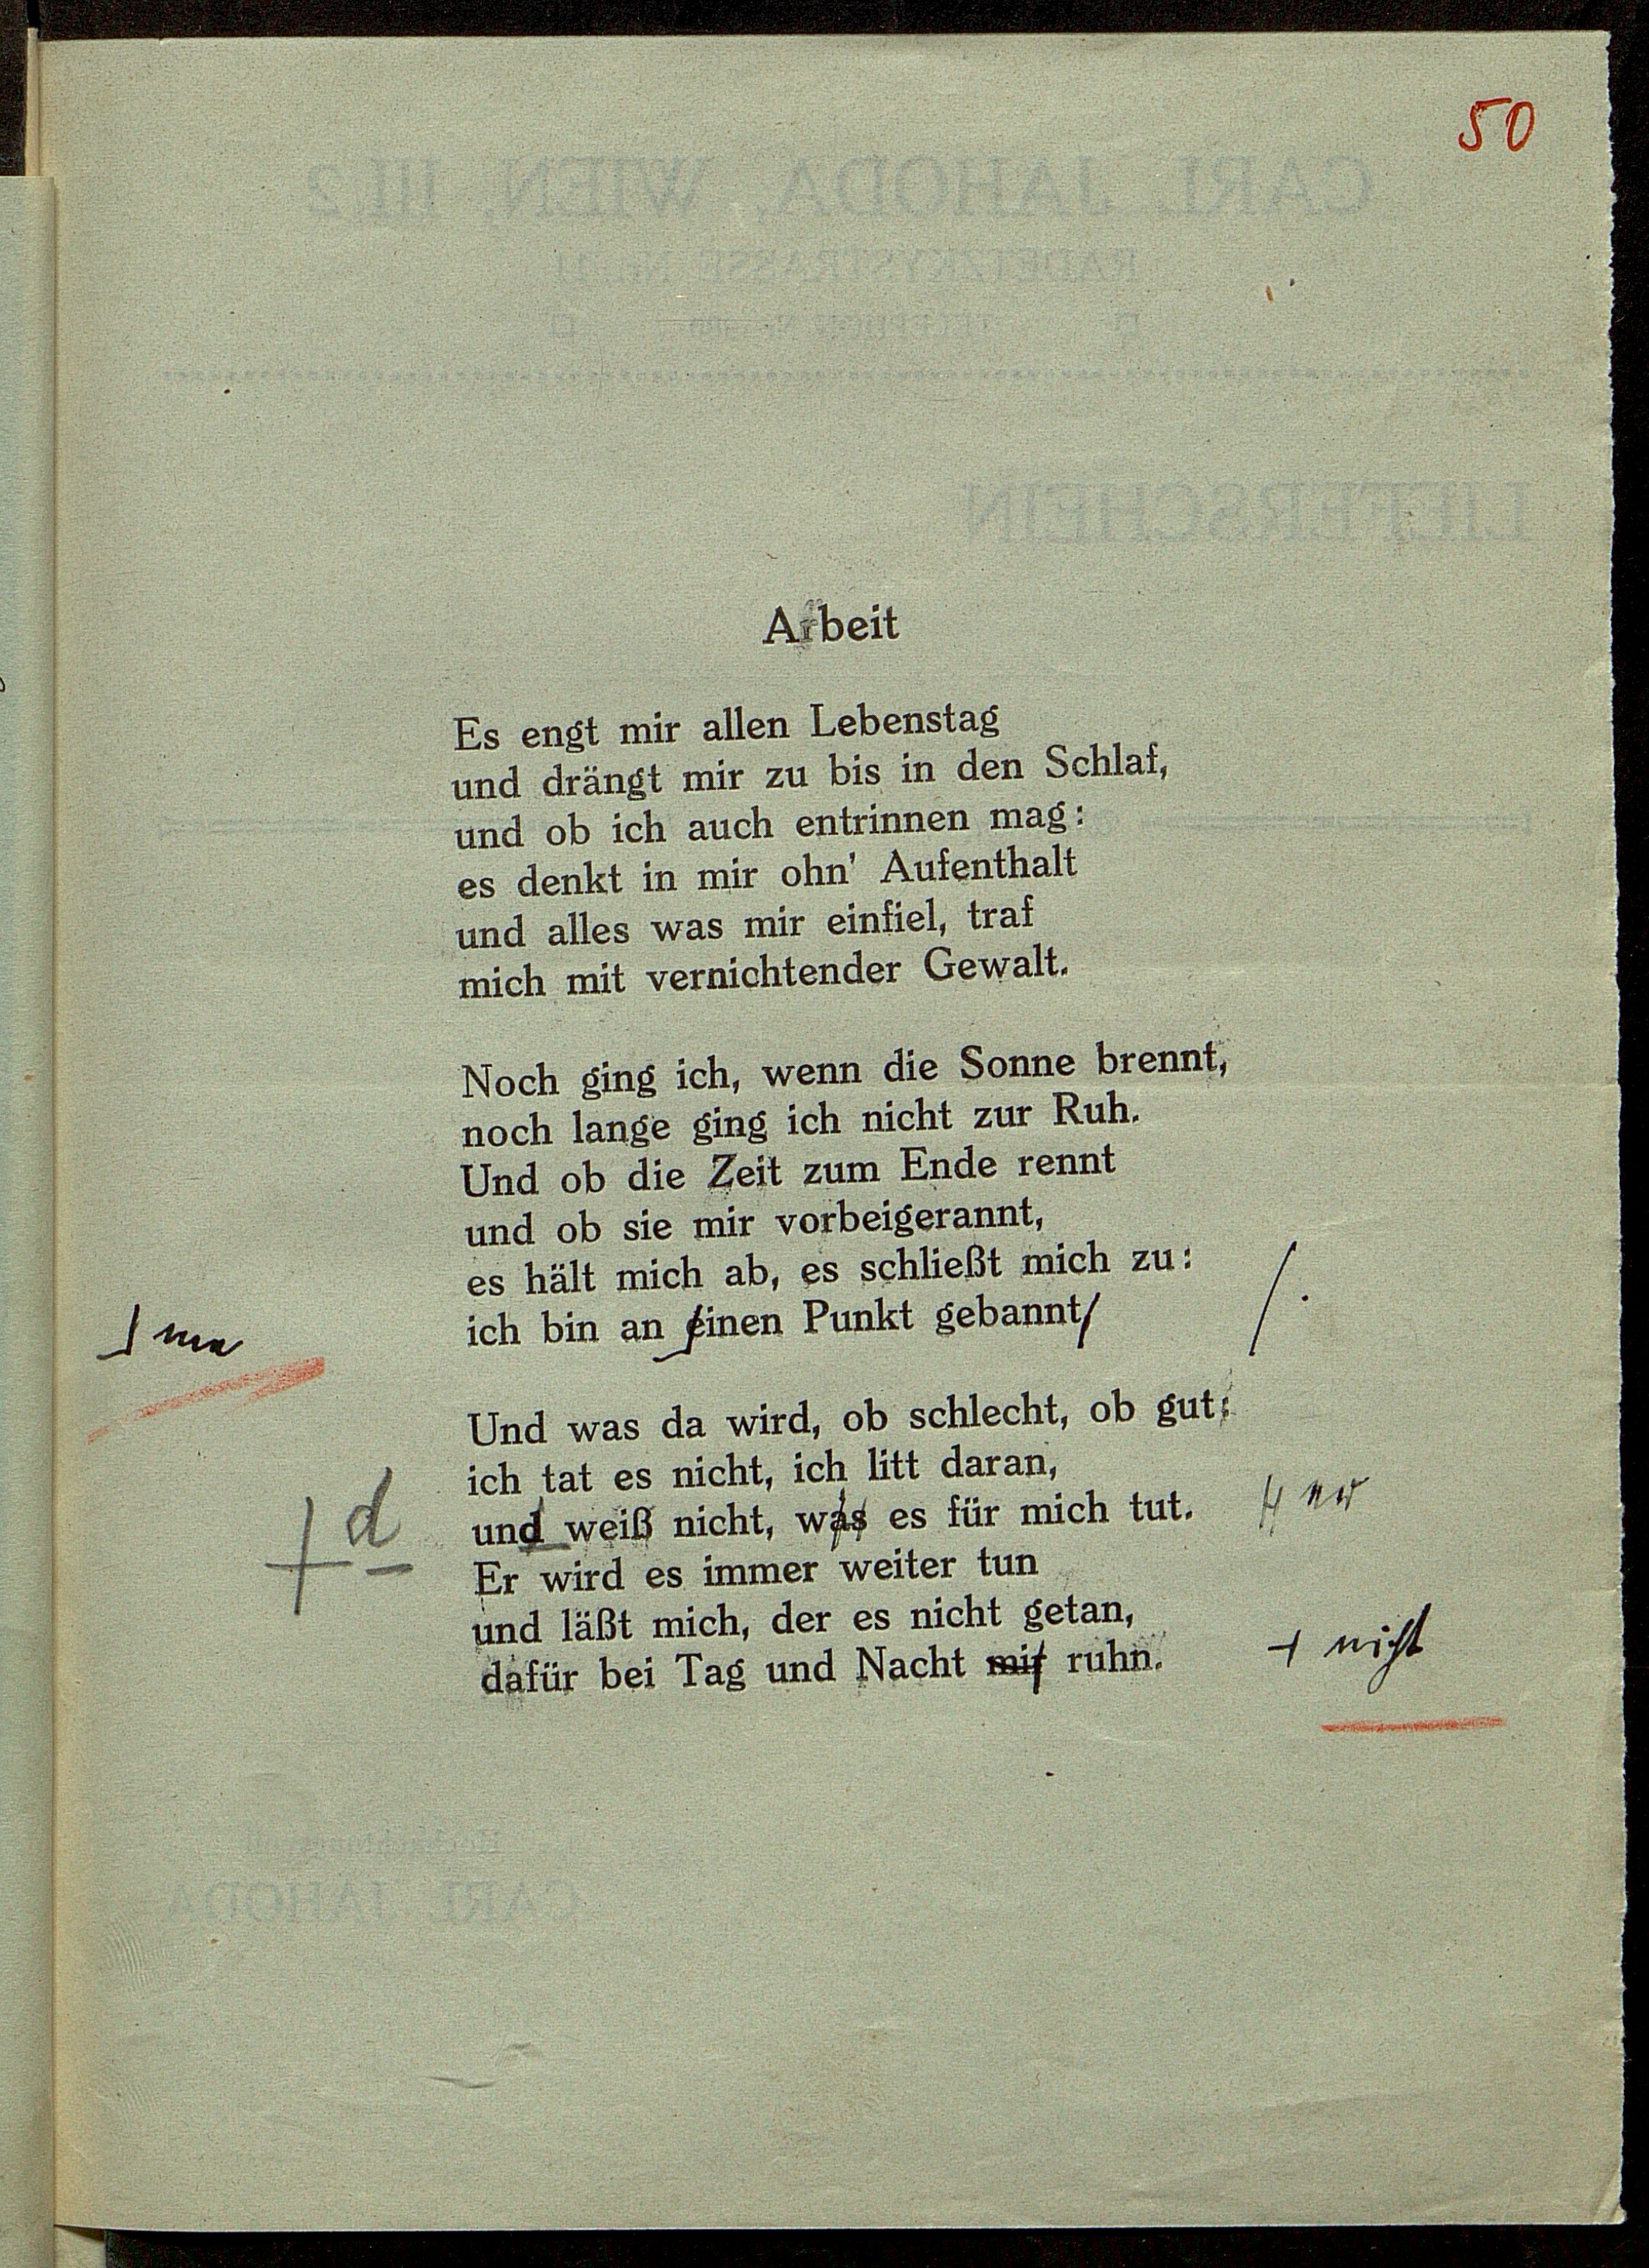 50
CARL JAHODA, WIEN, III 2
RADETZKYSTRASSE Nr. 11
LIEFERSCHEIN
Arbeit
Es engt mir allen Lebenstag
und drängt mir zu bis in den Schlaf,
und ob ich auch entrinnen mag:
es denkt in mir ohn' Aufenthalt
und alles was mir einfiel, traf
mich mit vernichtender Gewalt.
Noch ging ich, wenn die Sonne brennt,
noch lange ging ich nicht zur Ruh.
Und ob die Zeit zum Ende rennt
und ob sie mir vorbeigerannt,
es hält mich ab, es schließt mich zu:
ich bin an einen Punkt gebannt
Und was da wird, ob schlecht, ob gut:
ich tat es nicht, ich litt daran,
und weiß nicht, was es für mich tut.
d
Er wird es immer weiter tun
und läßt mich, der es nicht getan,
dafür bei Tag und Nacht mit ruhn.
nicht
CARL JAHODA